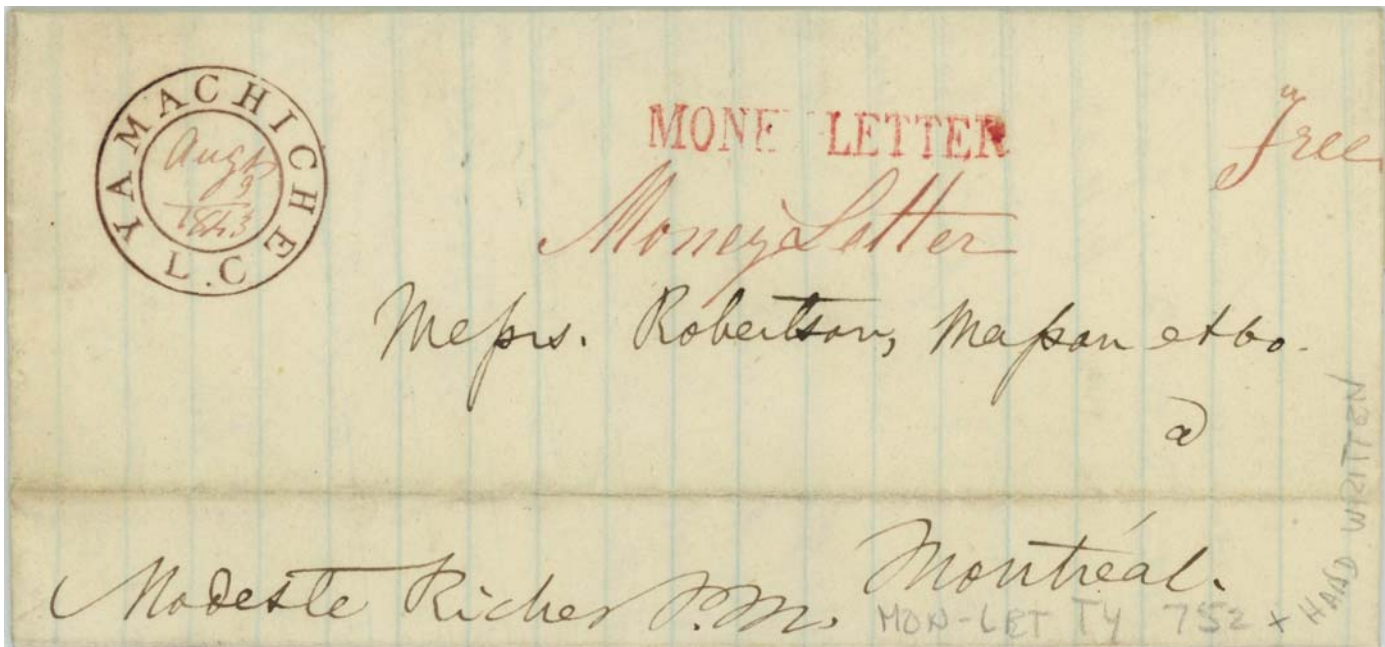 YAMACHICHE
L.C
Augt
9
1843
MONE LETTER
Free
Money Letter
Messrs. Robertson, Masson et Co.
à
Montréal.
Modeste Richer P.M.
MON-LET TY 752 x HAND WRITTEN